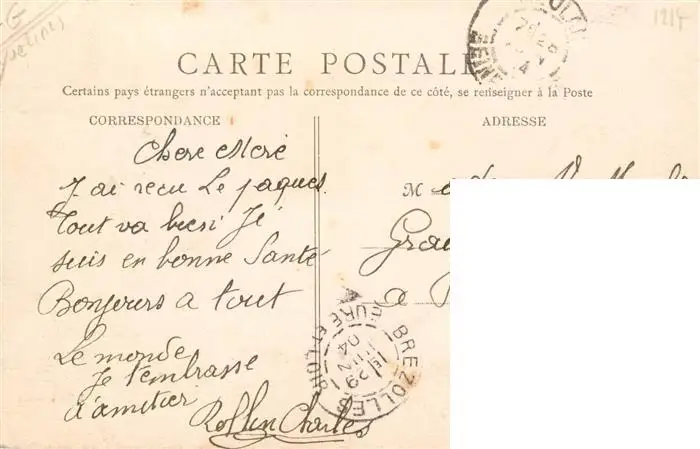 1914
CARTE POSTALE
Certains pays étrangers n'acceptant pas la correspondance de ce côté, se renseigner à la Poste
CORRESPONDANCE
ADRESSE
Chere Meré
J'ai recu Le paques
Tout va bien Je
suis en bonne Santé
Bonjours a tout
Le monde
Je t'embrasse
d'amitier
Rollin Charles
M
a
BREZOLLES
EURE ET LOIR
29
JUIN
04